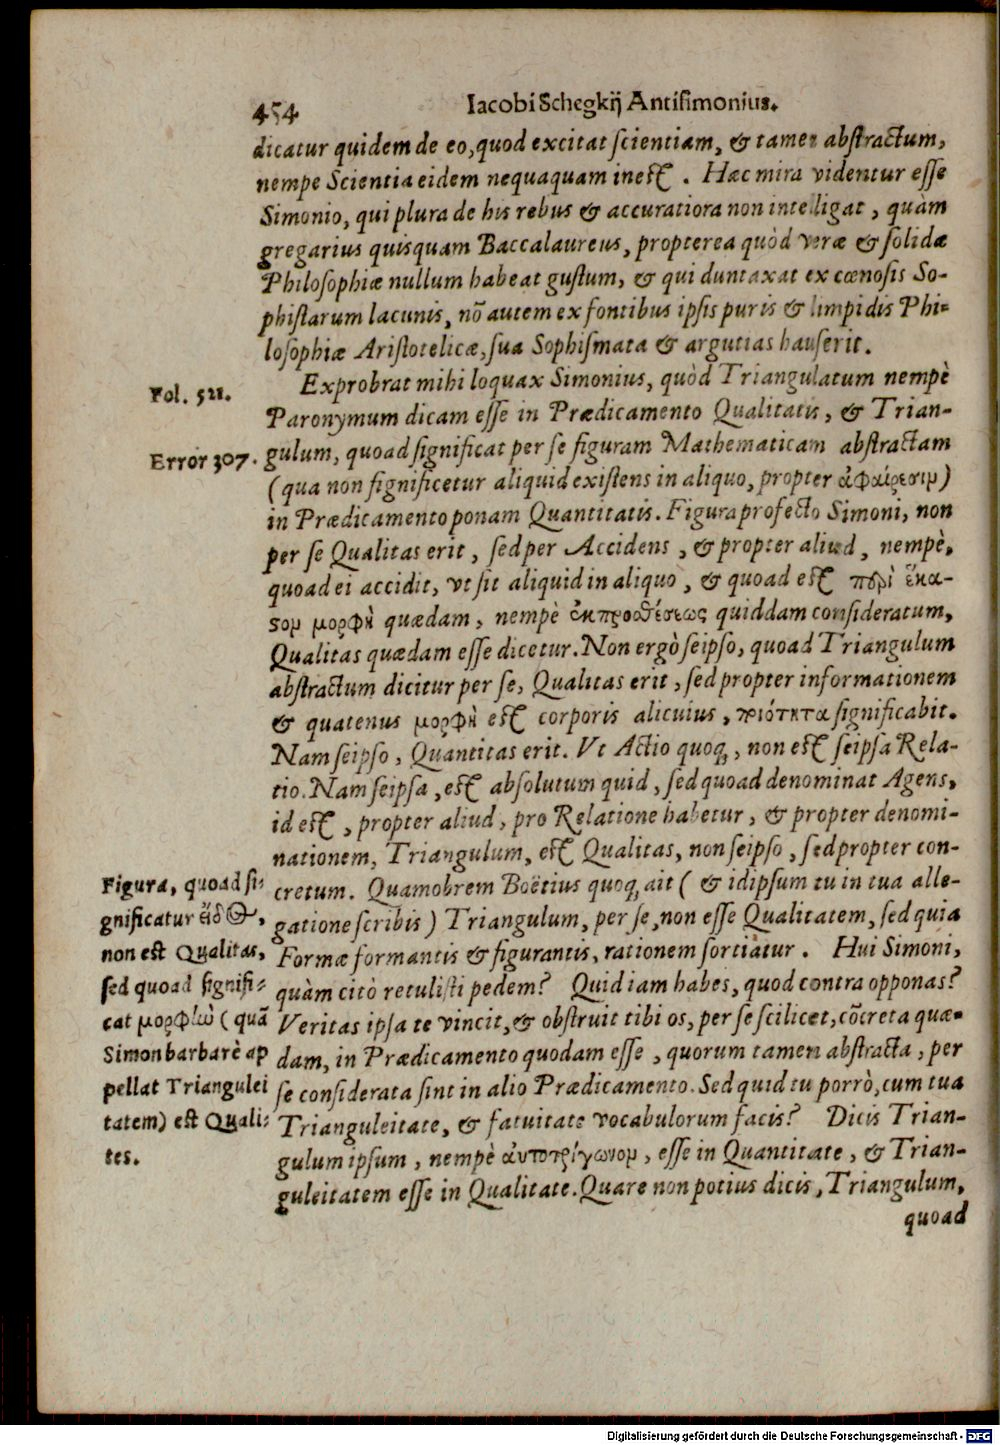 454 Iacobi Schegkij Antisimonius.
dicatur quidem de eo, quod excitat scientiam, & tamen abstractum,
nempe Scientia eidem nequaquam inest. Hæc mira videntur esse
Simonio, qui plura de his rebus & accuratiora non intelligat, quàm
gregarius quisquam Baccalaureus, propterea quòd veræ & solidæ
Philosophiæ nullum habeat gustum, & qui duntaxat ex cœnosis So-
phistarum lacunis, nō autem ex fontibus ipsis puris & limpidis Phi-
losophiæ Aristotelicæ, sua Sophismata & argutias hauserit.
Exprobrat mihi loquax Simonius, quòd Triangulatum nempè
Fol. 521.
Paronymum dicam esse in Prædicamento Qualitatis, & Trian-
gulum, quoad significat per se figuram Mathematicam abstractam
Error 307.
(qua non significetur aliquid existens in aliquo, propter ἀφαίρεσιν)
in Prædicamento ponam Quantitatis. Figura profecto Simoni, non
per se Qualitas erit, sed per Accidens, & propter aliud, nempè,
quoad ei accidit, vt sit aliquid in aliquo, & quoad est περὶ ἕκα-
ϛον μορφὴ quædam, nempè ἐκ προσθέσεως quiddam consideratum,
Qualitas quædam esse dicetur. Non ergò seipso, quoad Triangulum
abstractum dicitur per se, Qualitas erit, sed propter informationem
& quatenus μορφὴ est corporis alicuius, ποιότητα significabit.
Nam seipso, Quantitas erit. Vt Actio quoq;, non est seipsa Rela-
tio. Nam seipsa, est absolutum quid, sed quoad denominat Agens,
id est, propter aliud, pro Relatione habetur, & propter denomi-
nationem, Triangulum, est Qualitas, non seipso, sed propter con-
cretum. Quamobrem Boëtius quoq; ait (& idipsum tu in tua alle-
gatione scribis) Triangulum, per se, non esse Qualitatem, sed quia
Formæ formantis & figurantis, rationem sortiatur. Hui Simoni,
quàm citò retulisti pedem? Quid iam habes, quod contra opponas?
Veritas ipsa te vincit, & obstruit tibi os, per se scilicet, cōcreta quæ-
dam, in Prædicamento quodam esse, quorum tamen abstracta, per
se considerata sint in alio Prædicamento. Sed quid tu porrò, cum tua
Trianguleitate, & fatuitate vocabulorum facis? Dicis Trian-
gulum ipsum, nempè ἀυτοτρίγωνον, esse in Quantitate, & Trian-
guleitatem esse in Qualitate. Quare non potius dicis, Triangulum,
quoad
Figura, quoad si-
gnificatur εἶδος,
non est Qualitas,
sed quoad signifi-
cat μορφὴν (quā
Simon barbarè ap
pellat Triangulei
tatem) est Quali-
tes.
Digitalisierung gefördert durch die Deutsche Forschungsgemeinschaft - DFG